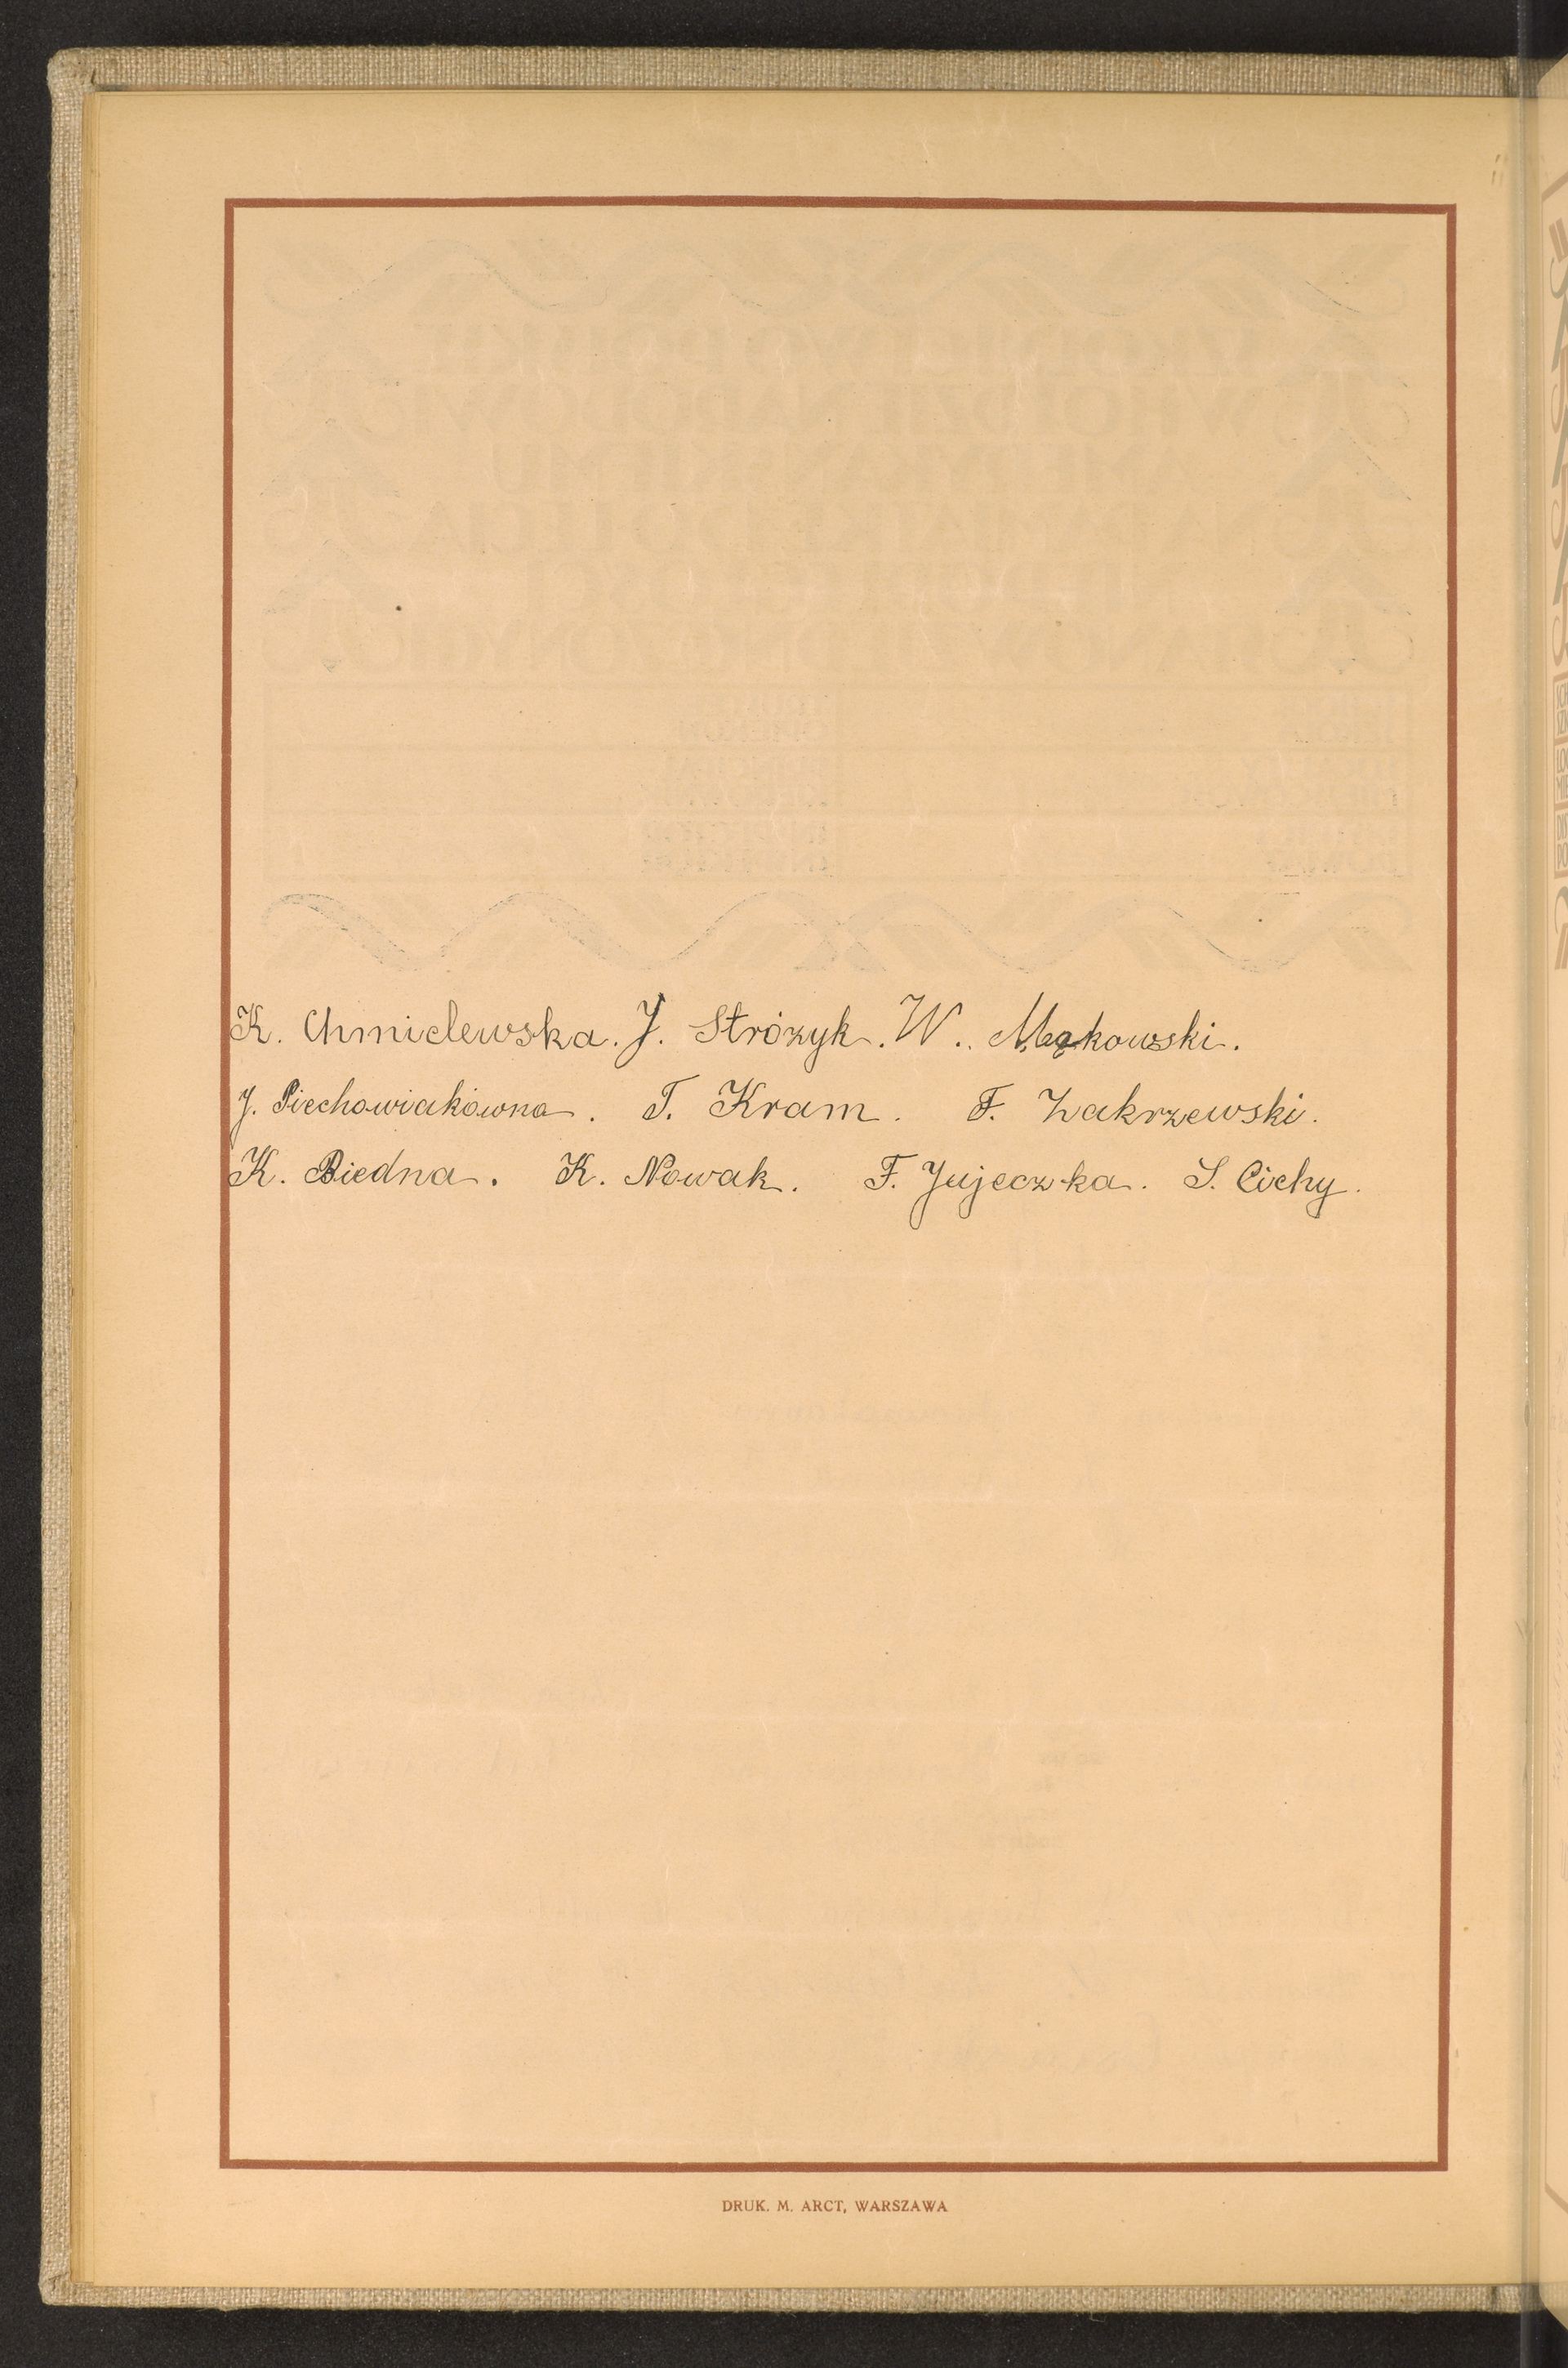 K. Chmielewska. J. Stróżyk. W.. Mąkowski.
J. Piechowiakówna. T. Kram. F. Zakrzewski.
K. Biedna. K. Nowak. F. Jujeczka. S. Cichy.
DRUK. M. ARCT, WARSZAWA